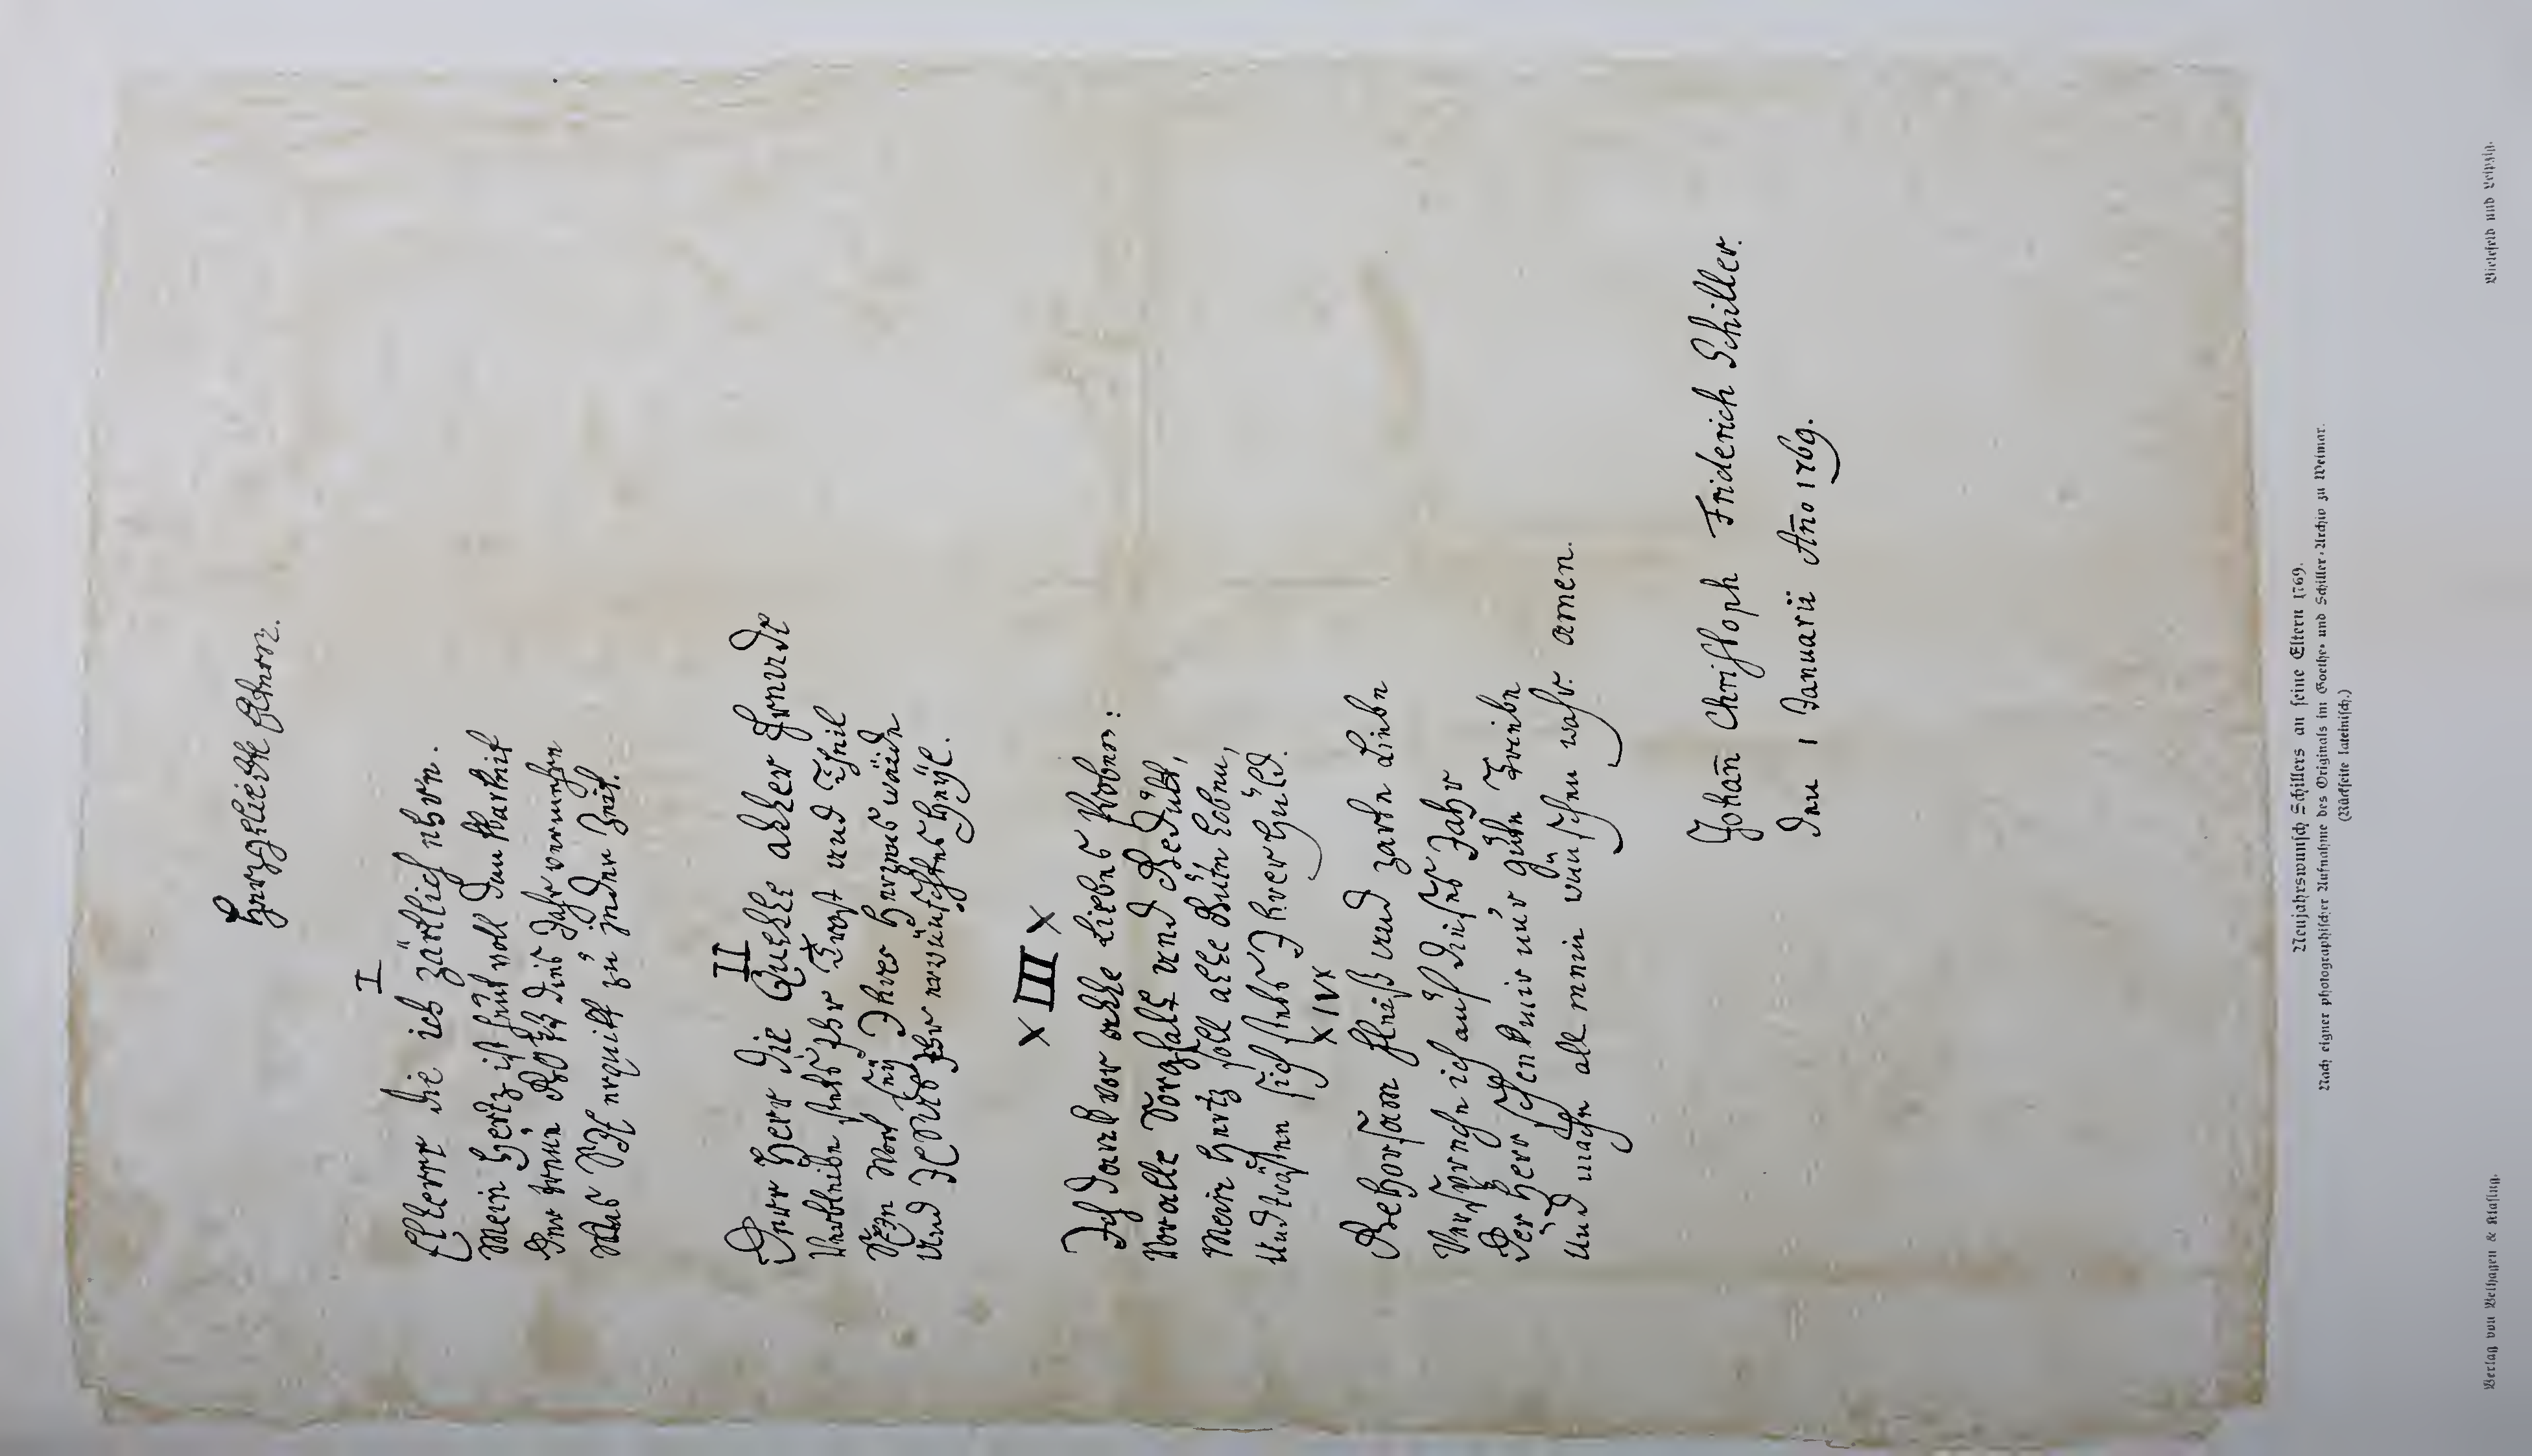 Herzgeliebte Eltern.
I
Eltern die ich zärtlich ehre.
Mein Hertz ist heut voll Danckbarkeit
Der treue Gott dies Jahr vermehre
Was Sie erquickt zu jeder Zeit.
II
Der Herr die Quelle aller Freude
Verbleibe stets Ihr Trost und Theil
Sein Wort sey Ihres Hertzens Weide
Und JESUS Ihr erwünschtes Heyl.
x III x
Ich danck vor alle Liebes Proben:
Vor alle Sorgfalt und Gedult,
Mein Hertz soll alle Güte loben,
Und trösten sich stets Ihrer Huld.
x IV x
Gehorsam Fleiß und zarte Liebe
Verspreche ich auf dieses Jahr
Der Herr schenk mir nur gute Triebe
Und mache all mein wünschen wahr. amen.
Johan̄ Christoph Friderich Schiller.
Den 1 Januarii An̄o 1769.
Neujahrswunsch Schillers an seine Eltern 1769.
Nach eigner photographischer Aufnahme des Originals im Goethe- und Schiller-Archiv zu Weimar.
(Rückseite lateinisch.)
Verlag von Velhagen & Klasing. Bielefeld und Leipzig.